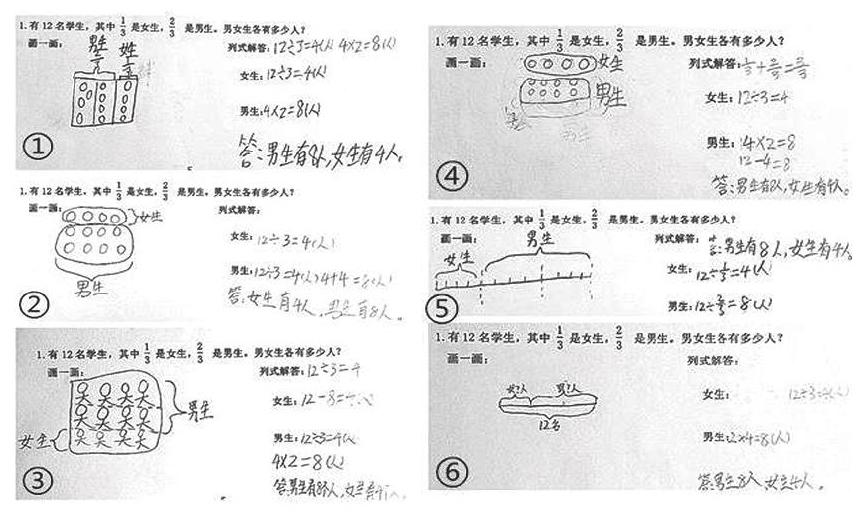 1.有12名学生，其中1/3是女生，2/3是男生。男女生各有多少人？
画一画：
男生 女生
列式解答：12÷3=4(人) 4×2=8(人)
女生：12÷3=4(人)
男生：4×2=8(人)
答：男生有8人，女生有4人。
①
1.有12名学生，其中1/3是女生，2/3是男生。男女生各有多少人？
画一画：
女生
男生
列式解答：
女生：12÷3=4(人)
男生：12÷3=4(人) 4+4=8(人)
答：女生有4人，男生有8人。
②
1.有12名学生，其中1/3是女生，2/3是男生。男女生各有多少人？
画一画：
男生
女生
列式解答：12÷3=4
女生：12-8=4
男生：12÷3=4(人)
4×2=8(人)
答：男生有8人，女生有4人。
③
1.有12名学生，其中1/3是女生，2/3是男生。男女生各有多少人？
画一画：
女生
男生
列式解答：1/3+2/3=3/3
女生：12÷3=4
男生：4×2=8
12-4=8
答：男生有8人，女生有4人。
④
1.有12名学生，其中1/3是女生，2/3是男生。男女生各有多少人？
画一画：
女生 男生
列式解答：
答：男生有8人，女生有4人。
女生：12÷1/3=4(人)
男生：12÷2/3=8(人)
⑤
1.有12名学生，其中1/3是女生，2/3是男生。男女生各有多少人？
画一画：
女?人 男?人
12名
列式解答：
女生：12÷3=4(人)
男生：2×4=8(人)
答：男生8人，女生4人。
⑥